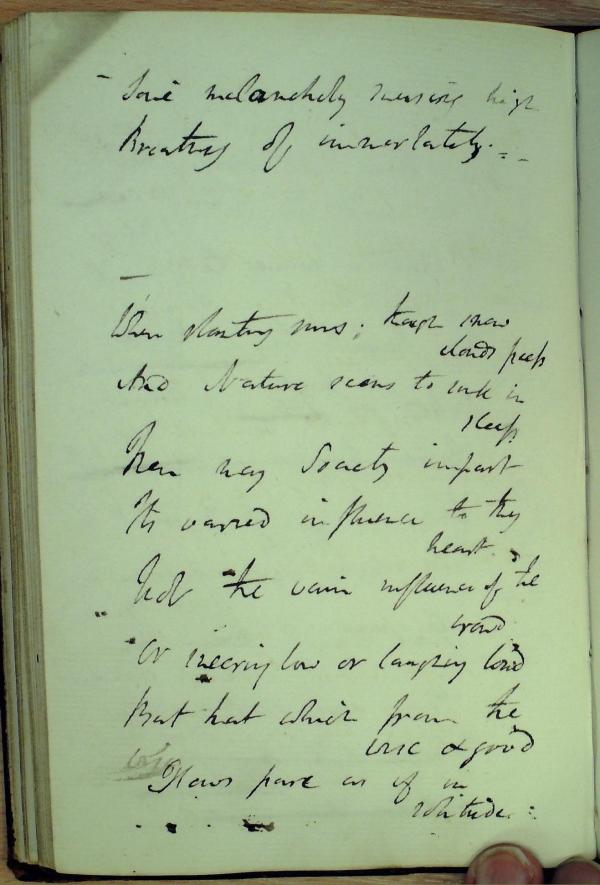 Some melancholy measure high
Breathes of immortality. - -
When slanting suns; through snow
clouds peep
And Nature seems to sink in
sleep
Then may Society impart
Its varied influence to thy
heart.
Not the vain influence of the
crowd
Or sneering low or laughing loud
But that which from the
wise & good
Flows pure as if in
solitude.